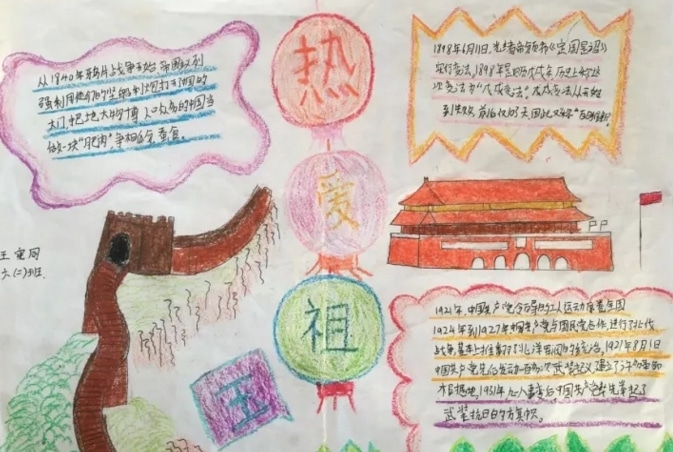 从1840年鸦片战争开始 帝国列
强利用他们的坚船利炮打了中国的
大门,把地大物博人口众多的中国当
做一块"肥肉"争相蚕食。
热
爱
祖
国
1898年6月11日,光绪帝颁布《定国是诏》
实行变法,1898年是旧历戊戌年历史上称这
次变法为"戊戌变法"。
到失败 前后仅103天因此又称"百日维新"。
1921年,中国共产党
1924年到1927年中国共产党与国民党合作,进行了北伐
战争,基本上推翻了北洋军阀的统治,1927年8月1日
中国共产党先后发动 武装起义,建立了
根据地,1931年九一八事变后中国共产党率先举起了
武装抗日的
王
六(二)班